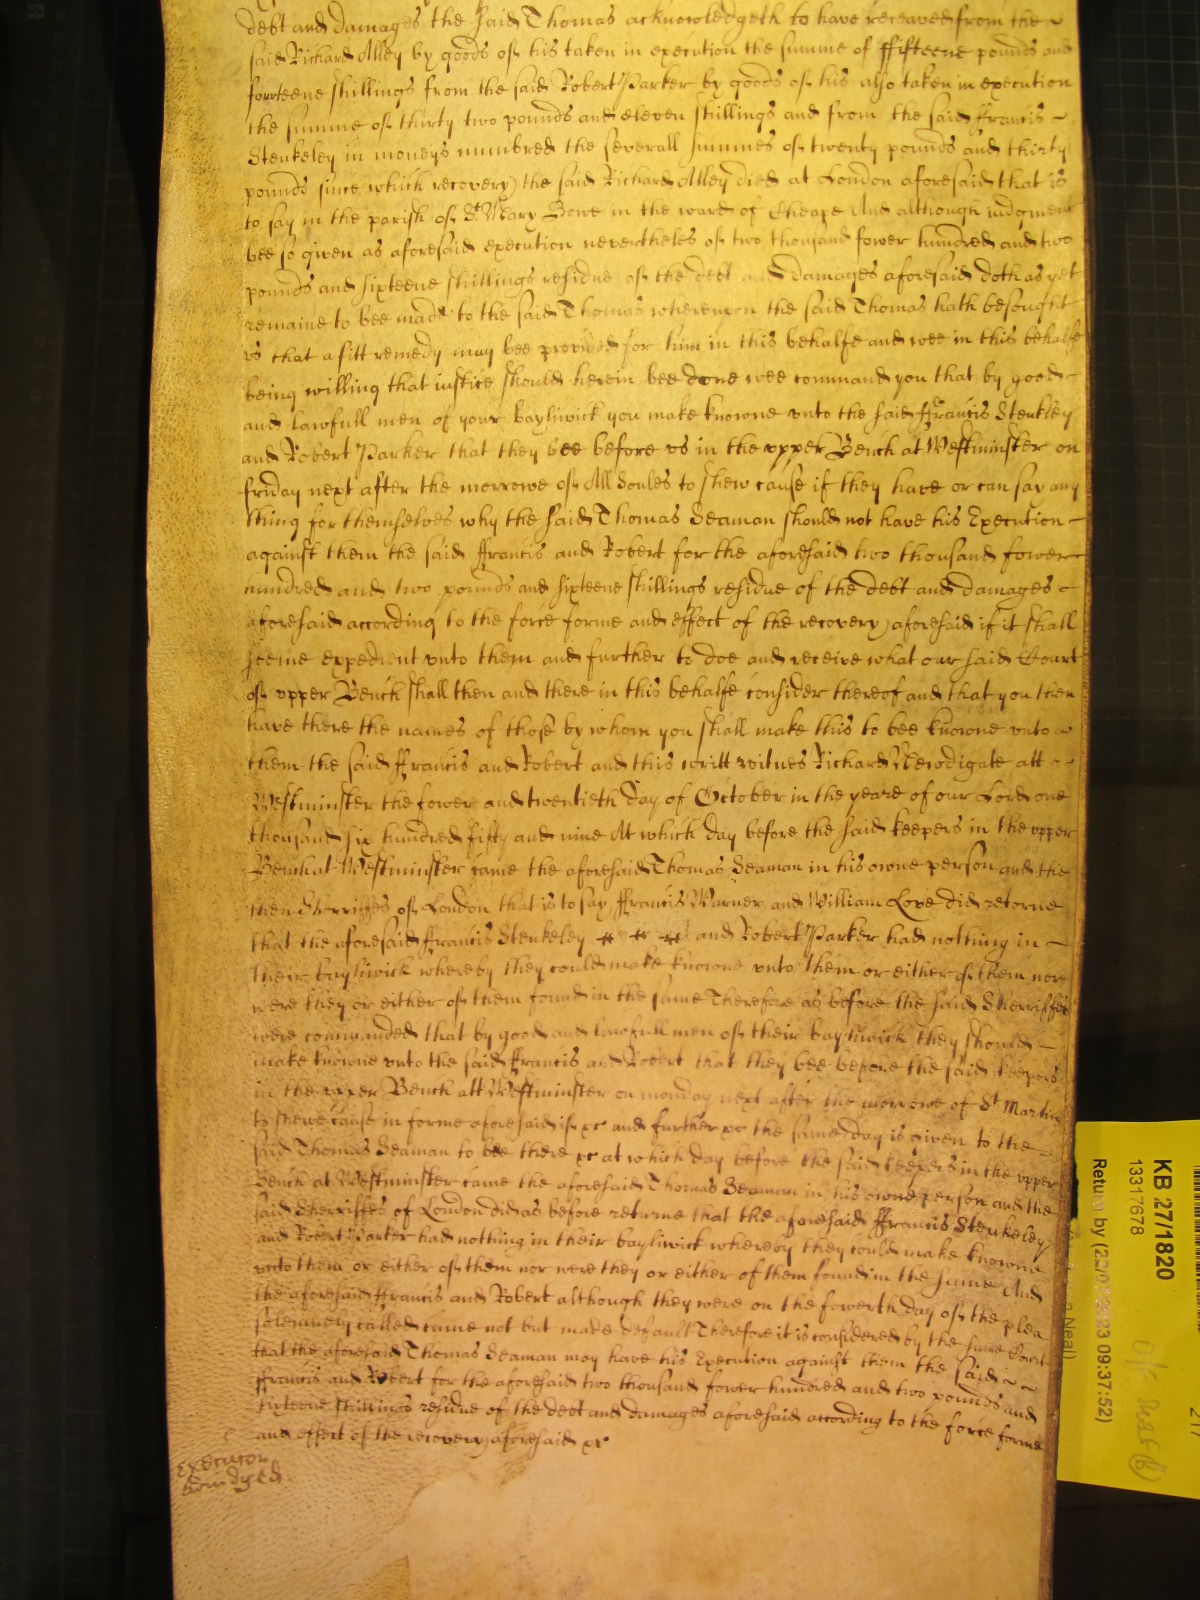 debt and damages the said Thomas acknowledgeth to have received from the
said Richard Alley by goods of his taken in execution the summe of ffifteene pounds and
forteene shillings from the said Robert Parker by goods of his also taken in execution
the summe of thirty two pounds and eleven shillings and from the said ffrancis
Steukeley in moneys numbred the severall summes of twenty pounds and thirty
pounds since which recovery the said Richard Alley died at London aforesaid that is
to say in the parish of St Mary Bowe in the ward of Cheape And although iudgment
bee so given as aforesaid execution nevertheles of two thousand fower hundred and two
pounds and sixteene shillings residue of the debt and damages aforesaid doth as yet
remaine to bee made to the said Thomas whereupon the said Thomas hath besought
vs that a fitt remedy may bee provided for him in this behalfe and wee in this behalfe
being willing that iustice should herein bee done wee command you that by good
and lawfull men of your bayliwick you make knowne vnto the said ffrancis Steukley
and Robert Parker that they bee before vs in the vpper Bench at Westminster on
friday next after the morrowe of All Soules to shew cause if they have or can say any
thing for themselves why the said Thomas Seaman should not have his Execution
against them the said ffrancis and Robert for the aforesaid two thousand fower
hundred and two pounds and sixteene shillings residue of the debt and damages
aforesaid according to the force forme and effect of the recovery aforesaid if it shall
seeme expedient vnto them and further to doe and receive what our said Court
of vpper Bench shall then and there in this behalfe consider thereof and that you then
have there the names of those by whom you shall make this to bee knowne vnto
them the said ffrancis and Robert and this writt witnes Richard Newdigate att
Westminster the fower and twentieth day of October in the yeare of our Lord one
thousand six hundred fifty and nine At which day before the said keepers in the vpper
Bench at Westminster came the aforesaid Thomas Seaman in his owne person and the
then Sherriffes of London that is to say ffrancis Warner and William Love did retorne
that the aforesaid ffrancis Steukeley and Robert Parker had nothing in
their bayliwick whereby they could make knowne vnto them or either of them nor
were they or either of them found in the same Therefore as before the said Sherriffes
were commanded that by good and lawfull men of their bayliwick they should
make knowne vnto the said ffrancis and Robert that they bee before the said keepers
in the vpper Bench att Westminster on monday next after the morrowe of St Martin
to shewe cause in forme aforesaid if xc and further xc the same day is given to the
said Thomas Seaman to bee there xc at which day before the said keepers in the vpper
Bench at Westminster came the aforesaid Thomas Seaman in his owne person and the
said Sherriffes of London did as before returne that the aforesaid ffrancis Steukeley
and Robert Parker had nothing in their bayliwick whereby they could make knowne
vnto them or either of them nor were they or either of them found in the same And
the aforesaid ffrancis and Robert although they were on the fowerth day of the plea
solemnely called came not but made default Therefore it is considered by the same Court
that the aforesaid Thomas Seaman may have his Execution against them the said
ffrancis and Robert for the aforesaid two thousand fower hundred and two pounds and
sixteene shillings residue of the debt and damages aforesaid according to the force forme
and effect of the recovery aforesaid xc
Executor
KB 27/1820
13317678
Return by (22/0 2023 09:37:52)
Neal)